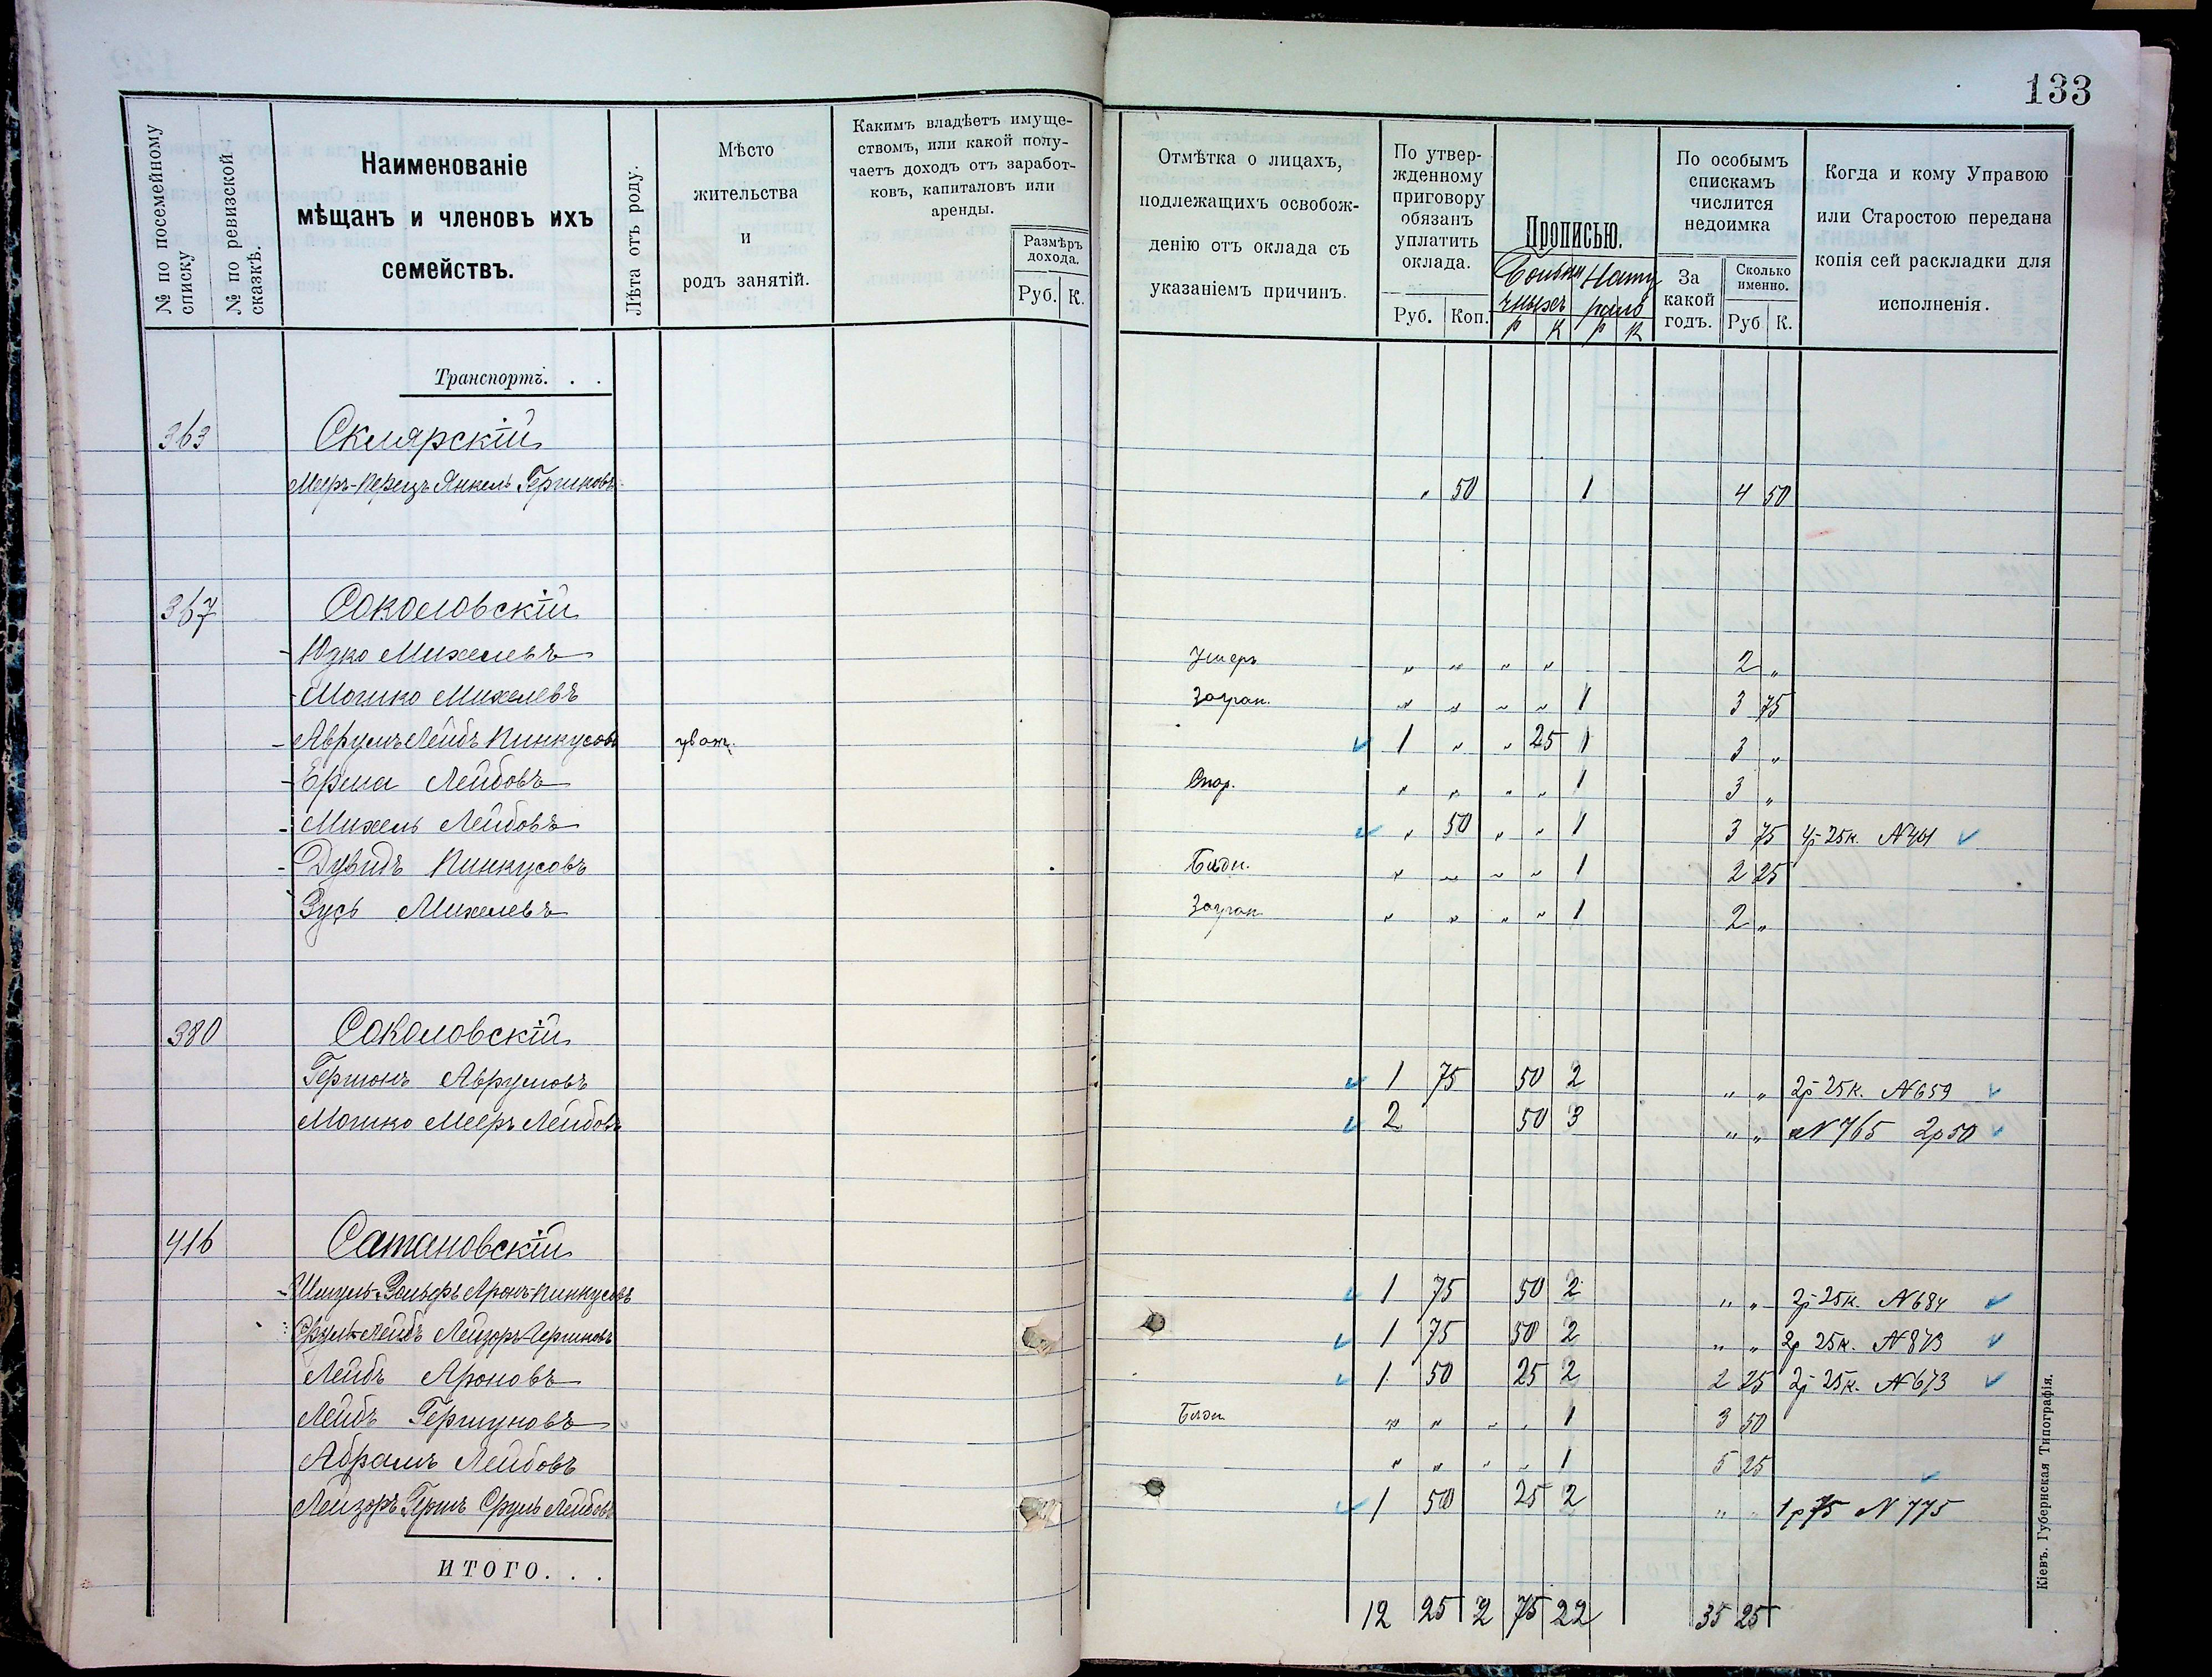 133
№ по посемейному списку
№ по ревизской сказкѣ.
Наименованіе
мѣщанъ и членовъ ихъ
семействъ.
Лѣта отъ роду.
Мѣсто
жительства
и
родъ занятій.
Какимъ владѣетъ имуще-
ствомъ, или какой полу-
чаетъ доходъ отъ заработ-
ковъ, капиталовъ или
аренды.
Размѣръ
дохода.
Руб. К.
Отмѣтка о лицахъ,
подлежащихъ освобож-
денію отъ оклада съ
указаніемъ причинъ.
По утвер-
жденному
приговору
обязанъ
уплатить
оклада.
Руб. Коп.
Прописью.
р К р К
По особымъ
спискамъ
числится
недоимка
За
какой
годъ.
Сколько
именно.
Руб К.
Когда и кому Управою
или Старостою передана
копія сей раскладки для
исполненія.
Транспортъ. . .
363 Склярскій
Мееръ-Перецъ Янкель Гершковъ " 50 1 4 50
367 Соколовскій
Юзко Михелевъ Умеръ " " " " 2 "
Мошко Михелевъ Загран. " " " " 1 3 75
Аврумъ Лейбъ Пинкусовъ 1 " " 25 1 3 "
Ерма Лейбовъ " " " " 1 3 "
Михель Лейбовъ " 50 " " 1 3 75 4р 25к. N 461
Дувидъ Пинкусовъ Бѣдн. " " " " 1 2 25
Зусь Михелевъ Загран " " " " 1 2 "
380 Соколовскій
Гершонъ Аврумовъ 1 75 50 2 " " 2р 25к. N 659
Мошко Мееръ Лейбовъ 2 50 3 " " N 765 2р 50
416 Сатановскій
Шмуль-Вольфъ Аронъ-Пинкусовъ 1 75 50 2 " " 2р 25к. N 684
Сруль-Лейбъ Лейзоръ-Гершковъ 1 75 50 2 " " 2р 25к. N 873
Лейбъ Ароновъ 1 50 25 2 2 25 2р 25к. N 673
Лейбъ Гершуновъ Бѣдн " " " " 1 3 50
Абрамъ Лейбовъ " " " " 1 5 25
Лейзоръ Гершъ Сруль Лейбовъ 1 50 25 2 " " 1р 75 N 775
ИТОГО. . .
12 25 2 75 22 35 25
Кіевъ. Губернская Типографія.